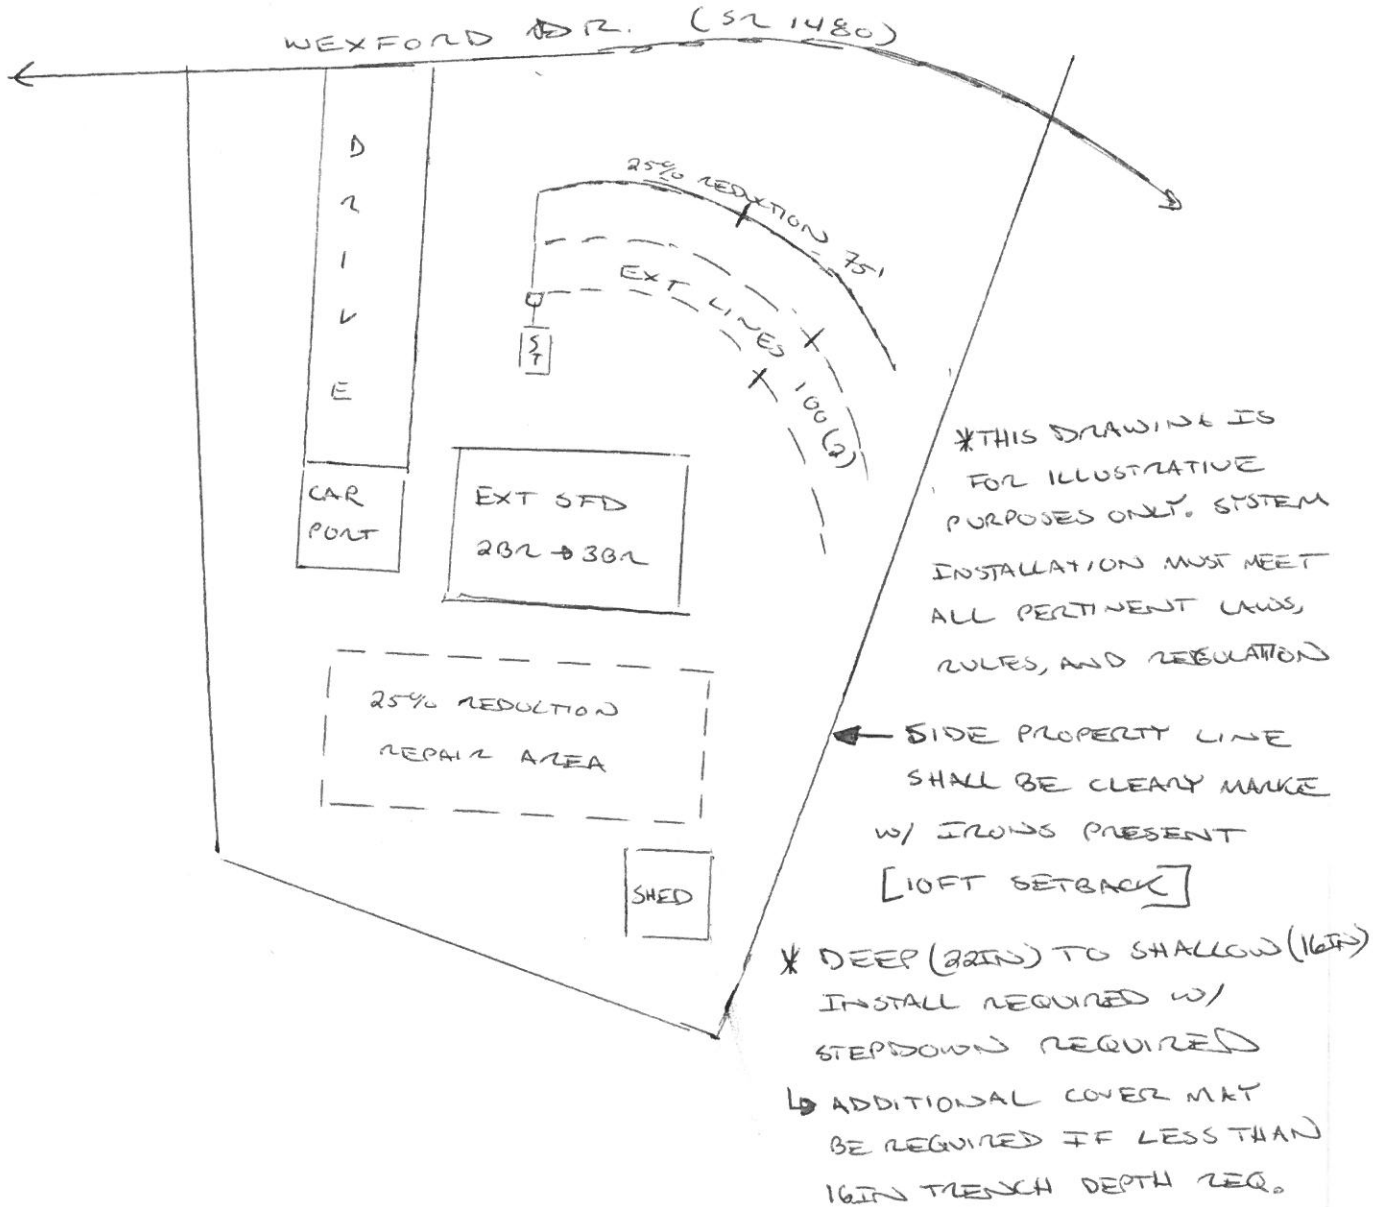 WEXFORD DR. (SR 1480)
DRIVE
25% REDUCTION 75'
EXT LINES 100 (2)
ST
CAR
PORT
EXT SFD
2BR → 3BR
25% REDUCTION
REPAIR AREA
SHED
*THIS DRAWING IS
FOR ILLUSTRATIVE
PURPOSES ONLY. SYSTEM
INSTALLATION MUST MEET
ALL PERTINENT LAWS,
RULES, AND REGULATION
← SIDE PROPERTY LINE
SHALL BE CLEARY MARKE
W/ IRONS PRESENT
[10FT SETBACK]
* DEEP (22IN) TO SHALLOW (16IN)
INSTALL REQUIRED W/
STEPDOWN REQUIRED
↳ ADDITIONAL COVER MAY
BE REQUIRED IF LESS THAN
16IN TRENCH DEPTH REQ.